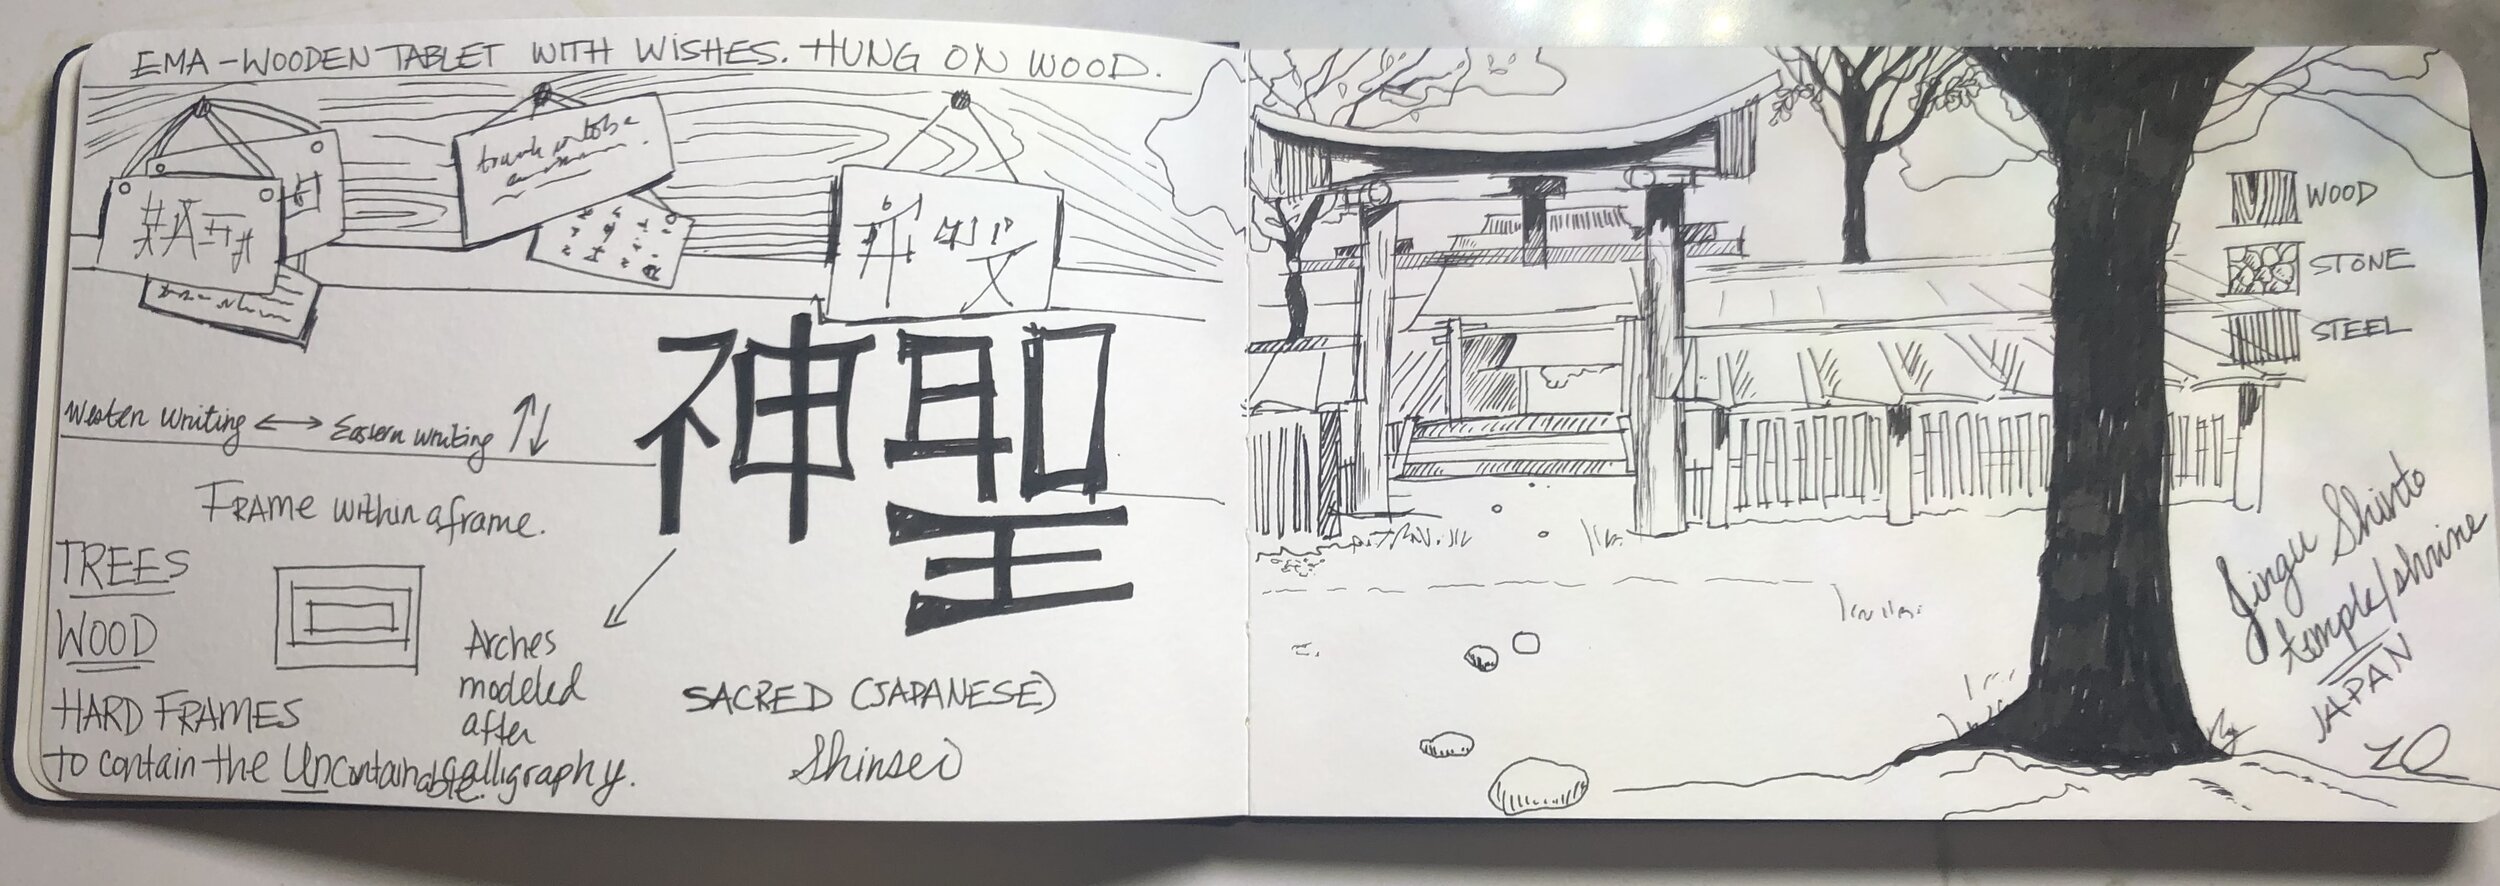 EMA - WOODEN TABLET WITH WISHES. HUNG ON WOOD.
Westen writing ↔ Eastern writing ↑↓
神聖
FRAME within a frame.
TREES
WOOD
HARD FRAMES
to contain the Uncontainable.
Arches
modeled
after
calligraphy.
SACRED (JAPANESE)
Shinsei
WOOD
STONE
STEEL
Jingu Shinto
temple/shrine
JAPAN